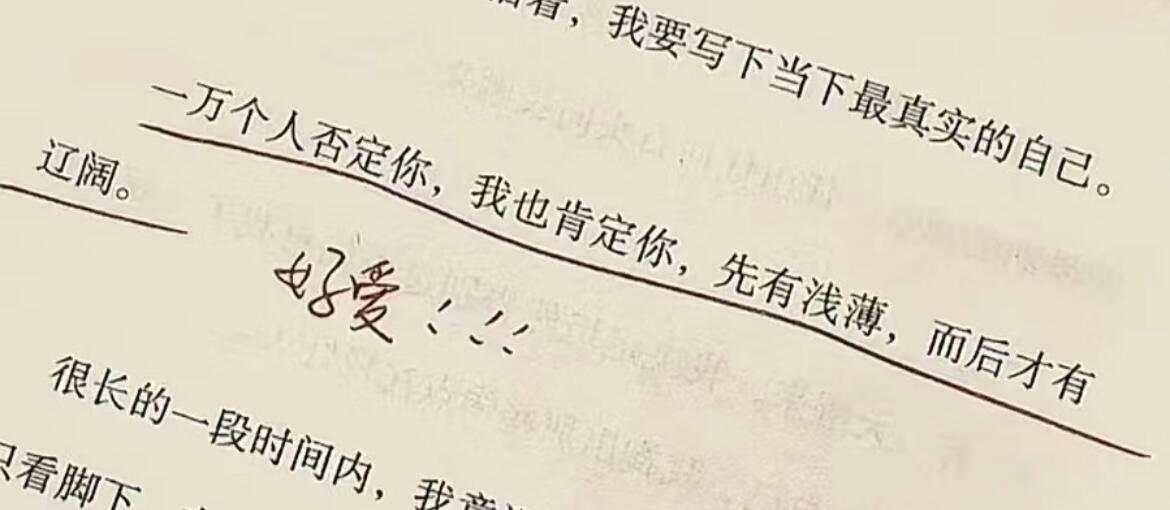 着，我要写下当下最真实的自己。
一万个人否定你，我也肯定你，先有浅薄，而后才有
辽阔。
好爱！！！
很长的一段时间内，我竟
只看脚下